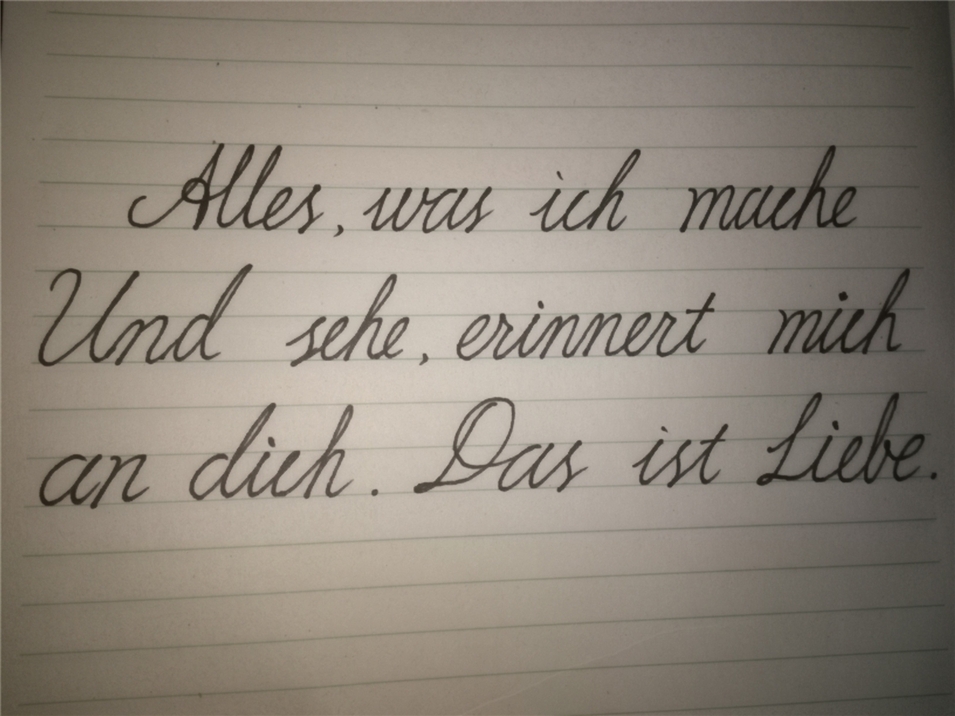 Alles, was ich mache
Und sehe, erinnert mich
an dich. Das ist Liebe.